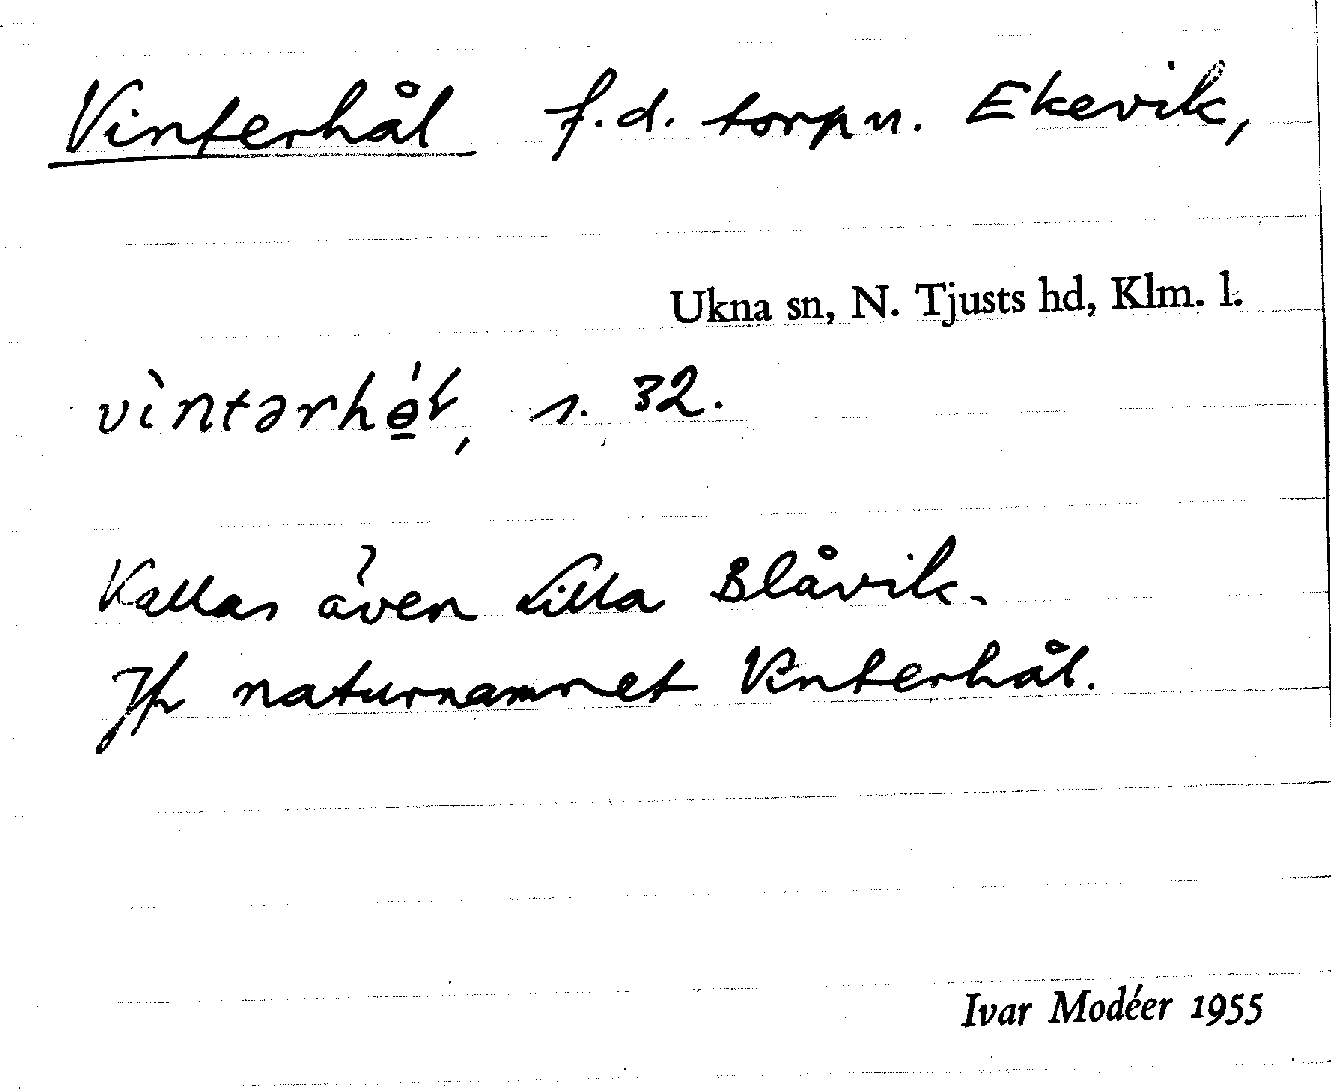 Vinterhål f.d. torp u. Ekevik,
Ukna sn, N. Tjusts hd, Klm. l.
vìntərhó̱ɫ, s. 32.
Kallas även Lilla Blåvik.
Jfr naturnamnet Vinterhål.
Ivar Modéer 1955